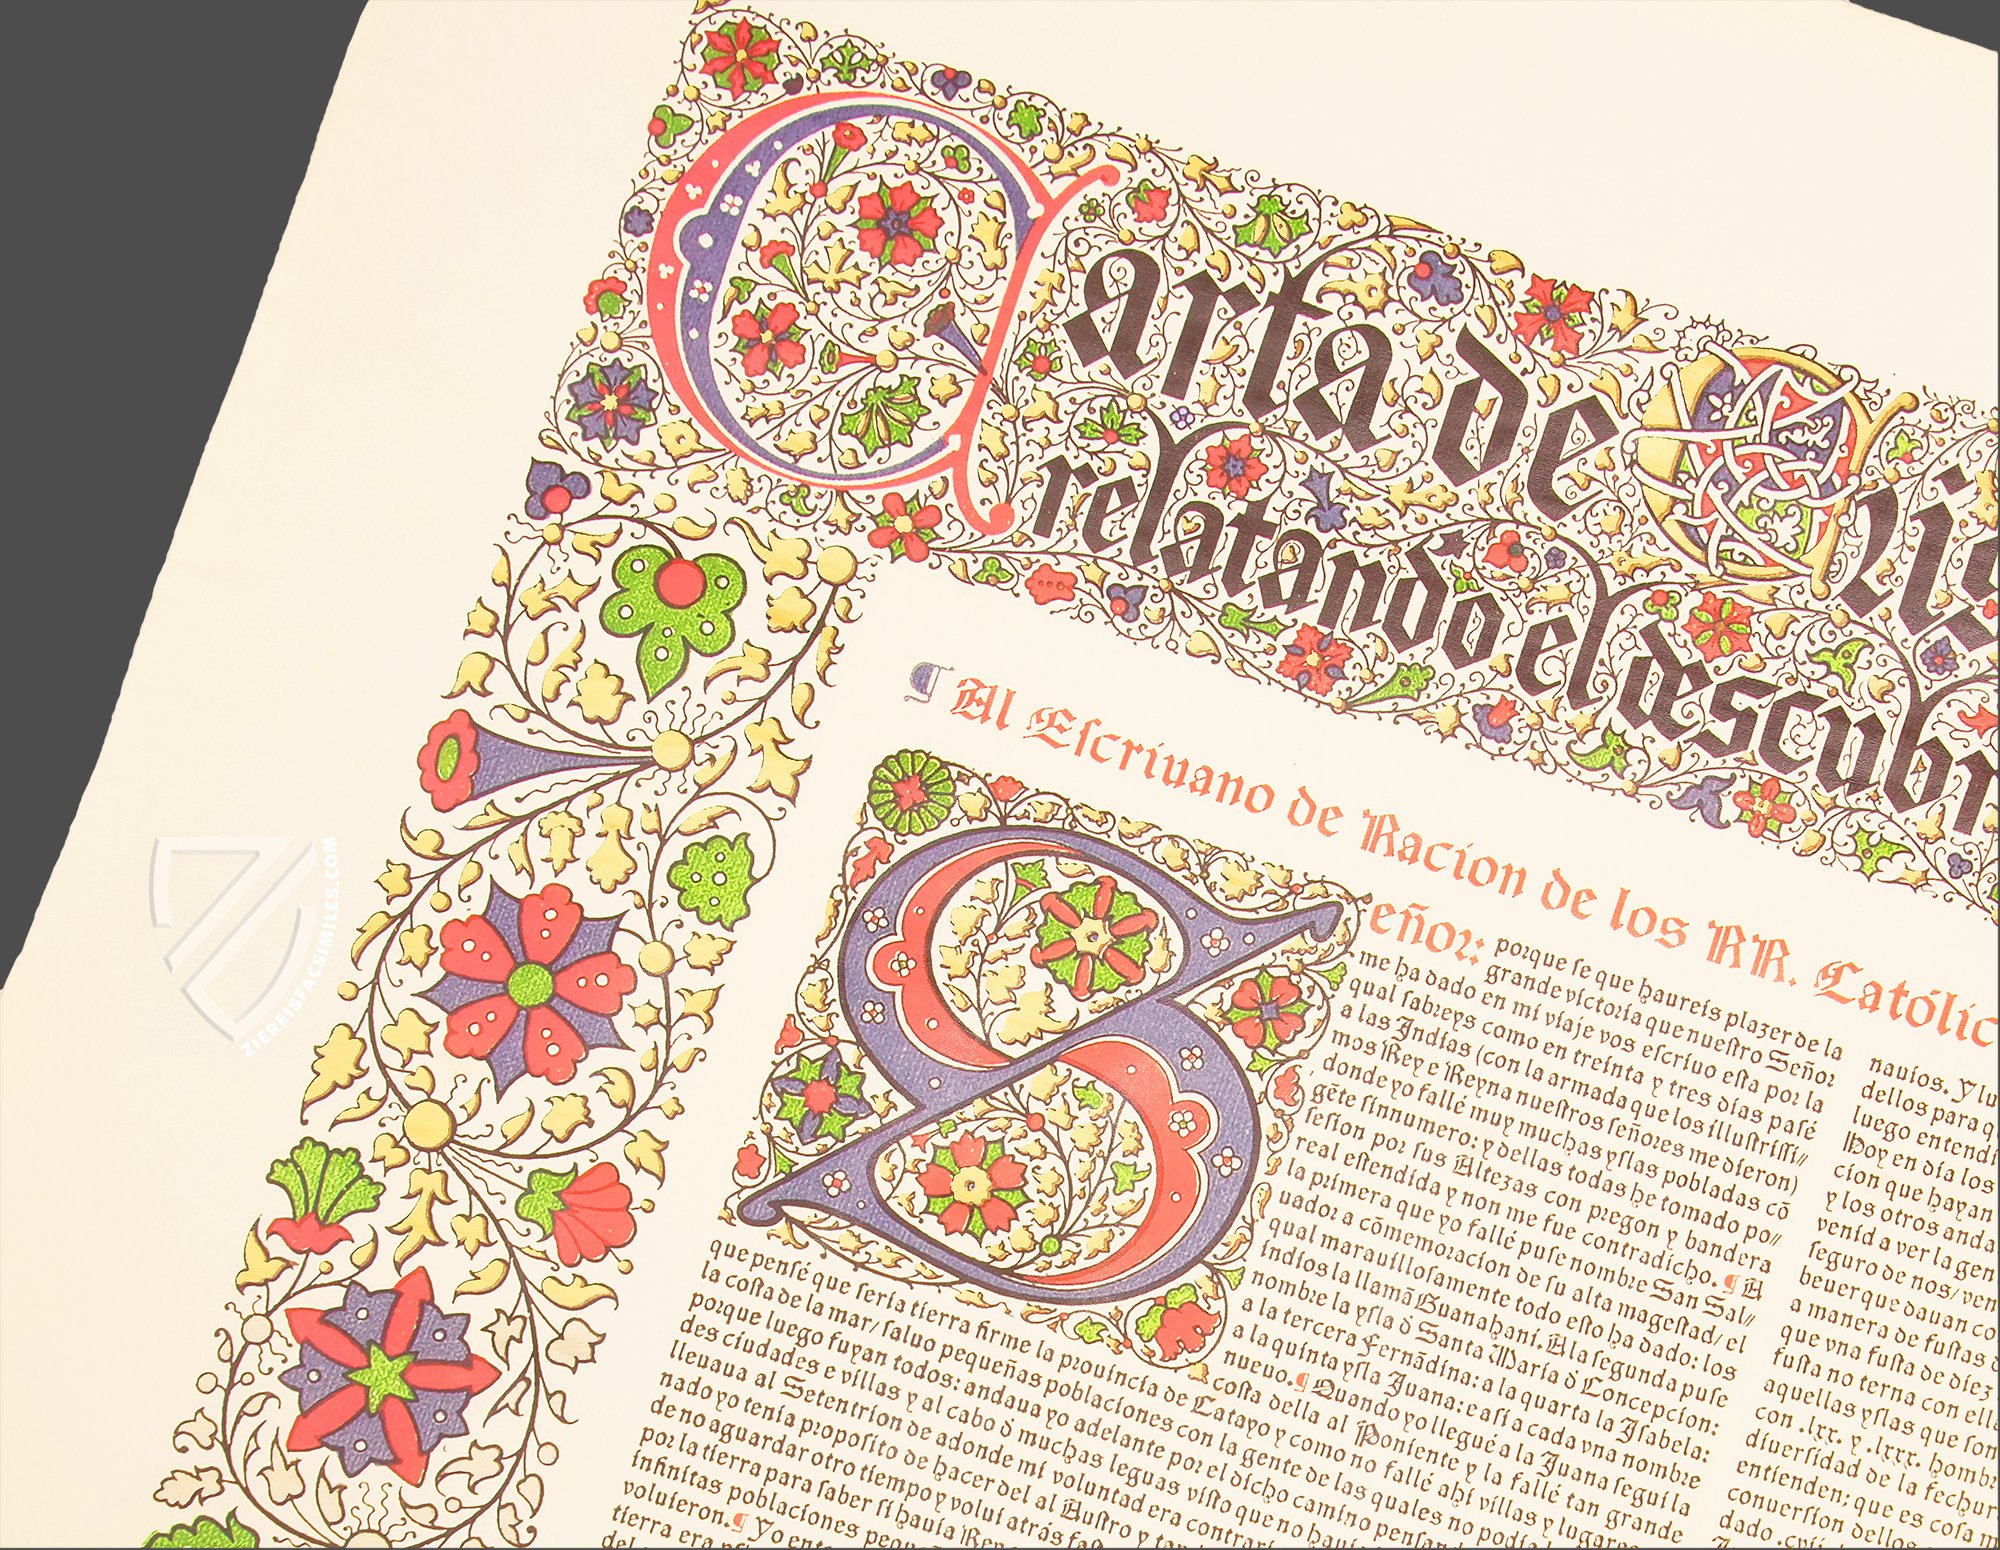 Carta de Cris
relatando el descubr
¶ Al Escriuano de Racion de los RR. Católic
Señor: porque se que haureis plazer de la
grande victoria que nuestro Señor
me ha dado en mi viaje vos escriuo esta por la
qual sabreys como en treinta y tres dias pasé
a las Indias (con la armada que los illustrissi//
mos Rey e Reyna nuestros señores me dieron)
donde yo fallé muy muchas yslas pobladas cō
gēte sinnumero: y dellas todas he tomado po//
sesion por sus Altezas con pregon y bandera
real estendida y non me fue contradicho. ¶ A
la primera que yo fallé puse nombre San Sal//
uador a cōmemoracion de su alta magestad/ el
qual marauillosamente todo esto ha dado: los
indios la llamā Guanahani. A la segunda puse
nombre la ysla ď Santa María ď Concepcion:
a la tercera Fernādina: a la quarta la Isabela:
a la quinta ysla Juana: e asi a cada vna nombre
nueuo. ¶ Quando yo llegué a la Juana seguí la
costa della al Poniente y la fallé tan grande
que pensé que sería tierra firme la prouincia de Catayo y como no fallé ahi villas y lugares
la costa de la mar/ saluo pequeñas poblaciones con la gente de las quales no podía
porque luego fuyan todos: andaua yo adelante por el dicho camino pensan
des ciudades e villas y al cabo ď muchas leguas visto que no hauia
lleuaua al Setentrion de adonde mi voluntad era contrari
nado yo tenía proposito de hacer del al Austro y tan
de no aguardar otro tiempo y voluí atrás
por la tierra para saber si hauia Rey
infinitas poblaciones peque
voluieron. ¶ Yo ente
tierra era
del
nauios. Y lu
dellos para q
luego entendi
Hoy en día los
cion que hayan
y los otros anda
venid a ver la gen
seguro de nos/ ven
beuer que dauan co
a manera de fustas
que vna fusta de diez
fusta no terna con ell
aquellas yslas que son
con .lxx. y .lxxx. hombr
diuersidad de la fechur
entienden; que es cosa m
conuersion dellos
dado .cvij
ZIEREISFACSIMILES.COM